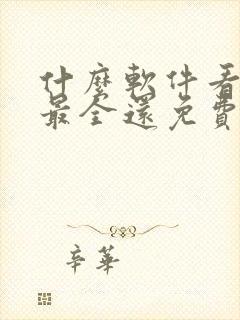 什麼軟件看
最全還免費
辛華